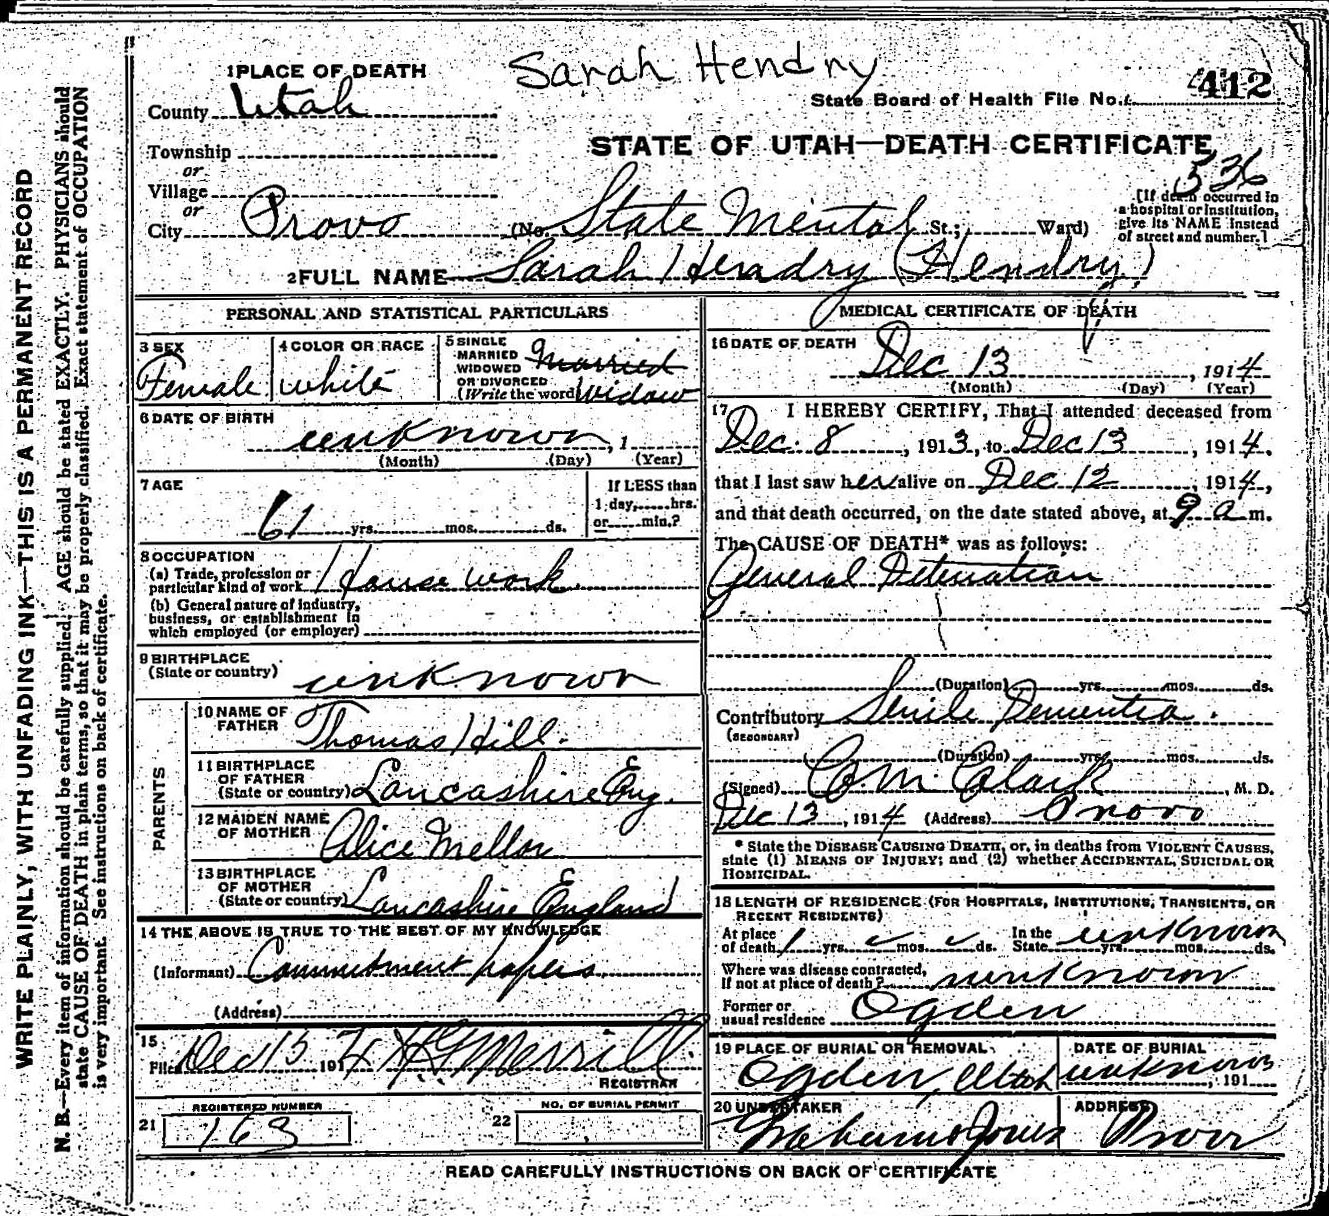 Sarah Hendry
412
State Board of Health File No.
STATE OF UTAH—DEATH CERTIFICATE
536
[If death occurred in
a hospital or institution,
give its NAME instead
of street and number.]
1 PLACE OF DEATH
County Utah
Township
or
Village
or
City Provo (No. State Mental St.; Ward)
2 FULL NAME Sarah Hendry (Hendry)
PERSONAL AND STATISTICAL PARTICULARS
3 SEX
Female
4 COLOR OR RACE
white
5 SINGLE
MARRIED
WIDOWED
OR DIVORCED
(Write the word)
Married
Widow
6 DATE OF BIRTH
unknown, 1
(Month) (Day) (Year)
7 AGE
61 yrs. mos. ds.
If LESS than
1 day, hrs.
or min.?
8 OCCUPATION
(a) Trade, profession or
particular kind of work House work.
(b) General nature of industry,
business, or establishment in
which employed (or employer)
9 BIRTHPLACE
(State or country) unknown
PARENTS
10 NAME OF
FATHER Thomas Hill.
11 BIRTHPLACE
OF FATHER
(State or country) Lancashire Eng.
12 MAIDEN NAME
OF MOTHER Alice Mellor
13 BIRTHPLACE
OF MOTHER
(State or country) Lancashire England
14 THE ABOVE IS TRUE TO THE BEST OF MY KNOWLEDGE
(Informant) Commitment papers
(Address)
15
Filed Dec 15 1914 Merrill
REGISTRAR
REGISTERED NUMBER
21 163
NO. OF BURIAL PERMIT
22
MEDICAL CERTIFICATE OF DEATH
16 DATE OF DEATH
Dec 13, 1914
(Month) (Day) (Year)
17 I HEREBY CERTIFY, That I attended deceased from
Dec. 8, 1913, to Dec 13, 1914.
that I last saw her alive on Dec 12, 1914,
and that death occurred, on the date stated above, at 9 a m.
The CAUSE OF DEATH* was as follows:
General
(Duration) yrs. mos. ds.
Contributory Senile Dementia.
(SECONDARY)
(Duration) yrs. mos. ds.
(Signed) C. M. Clark, M. D.
Dec 13, 1914 (Address) Provo
* State the DISEASE CAUSING DEATH, or, in deaths from VIOLENT CAUSES,
state (1) MEANS OF INJURY; and (2) whether ACCIDENTAL, SUICIDAL OR
HOMICIDAL.
18 LENGTH OF RESIDENCE (FOR HOSPITALS, INSTITUTIONS, TRANSIENTS, OR
RECENT RESIDENTS)
At place
of death 1 yrs. mos. ds.
In the
State unknown yrs. mos. ds.
Where was disease contracted,
If not at place of death? unknown
Former or
usual residence Ogden
19 PLACE OF BURIAL OR REMOVAL
Ogden, Utah
DATE OF BURIAL
unknown, 191
20 UNDERTAKER
Jones
ADDRESS
Provo
READ CAREFULLY INSTRUCTIONS ON BACK OF CERTIFICATE
WRITE PLAINLY, WITH UNFADING INK—THIS IS A PERMANENT RECORD
N. B.—Every item of information should be carefully supplied. AGE should be stated EXACTLY. PHYSICIANS should
state CAUSE OF DEATH in plain terms, so that it may be properly classified. Exact statement of OCCUPATION
is very important. See instructions on back of certificate.